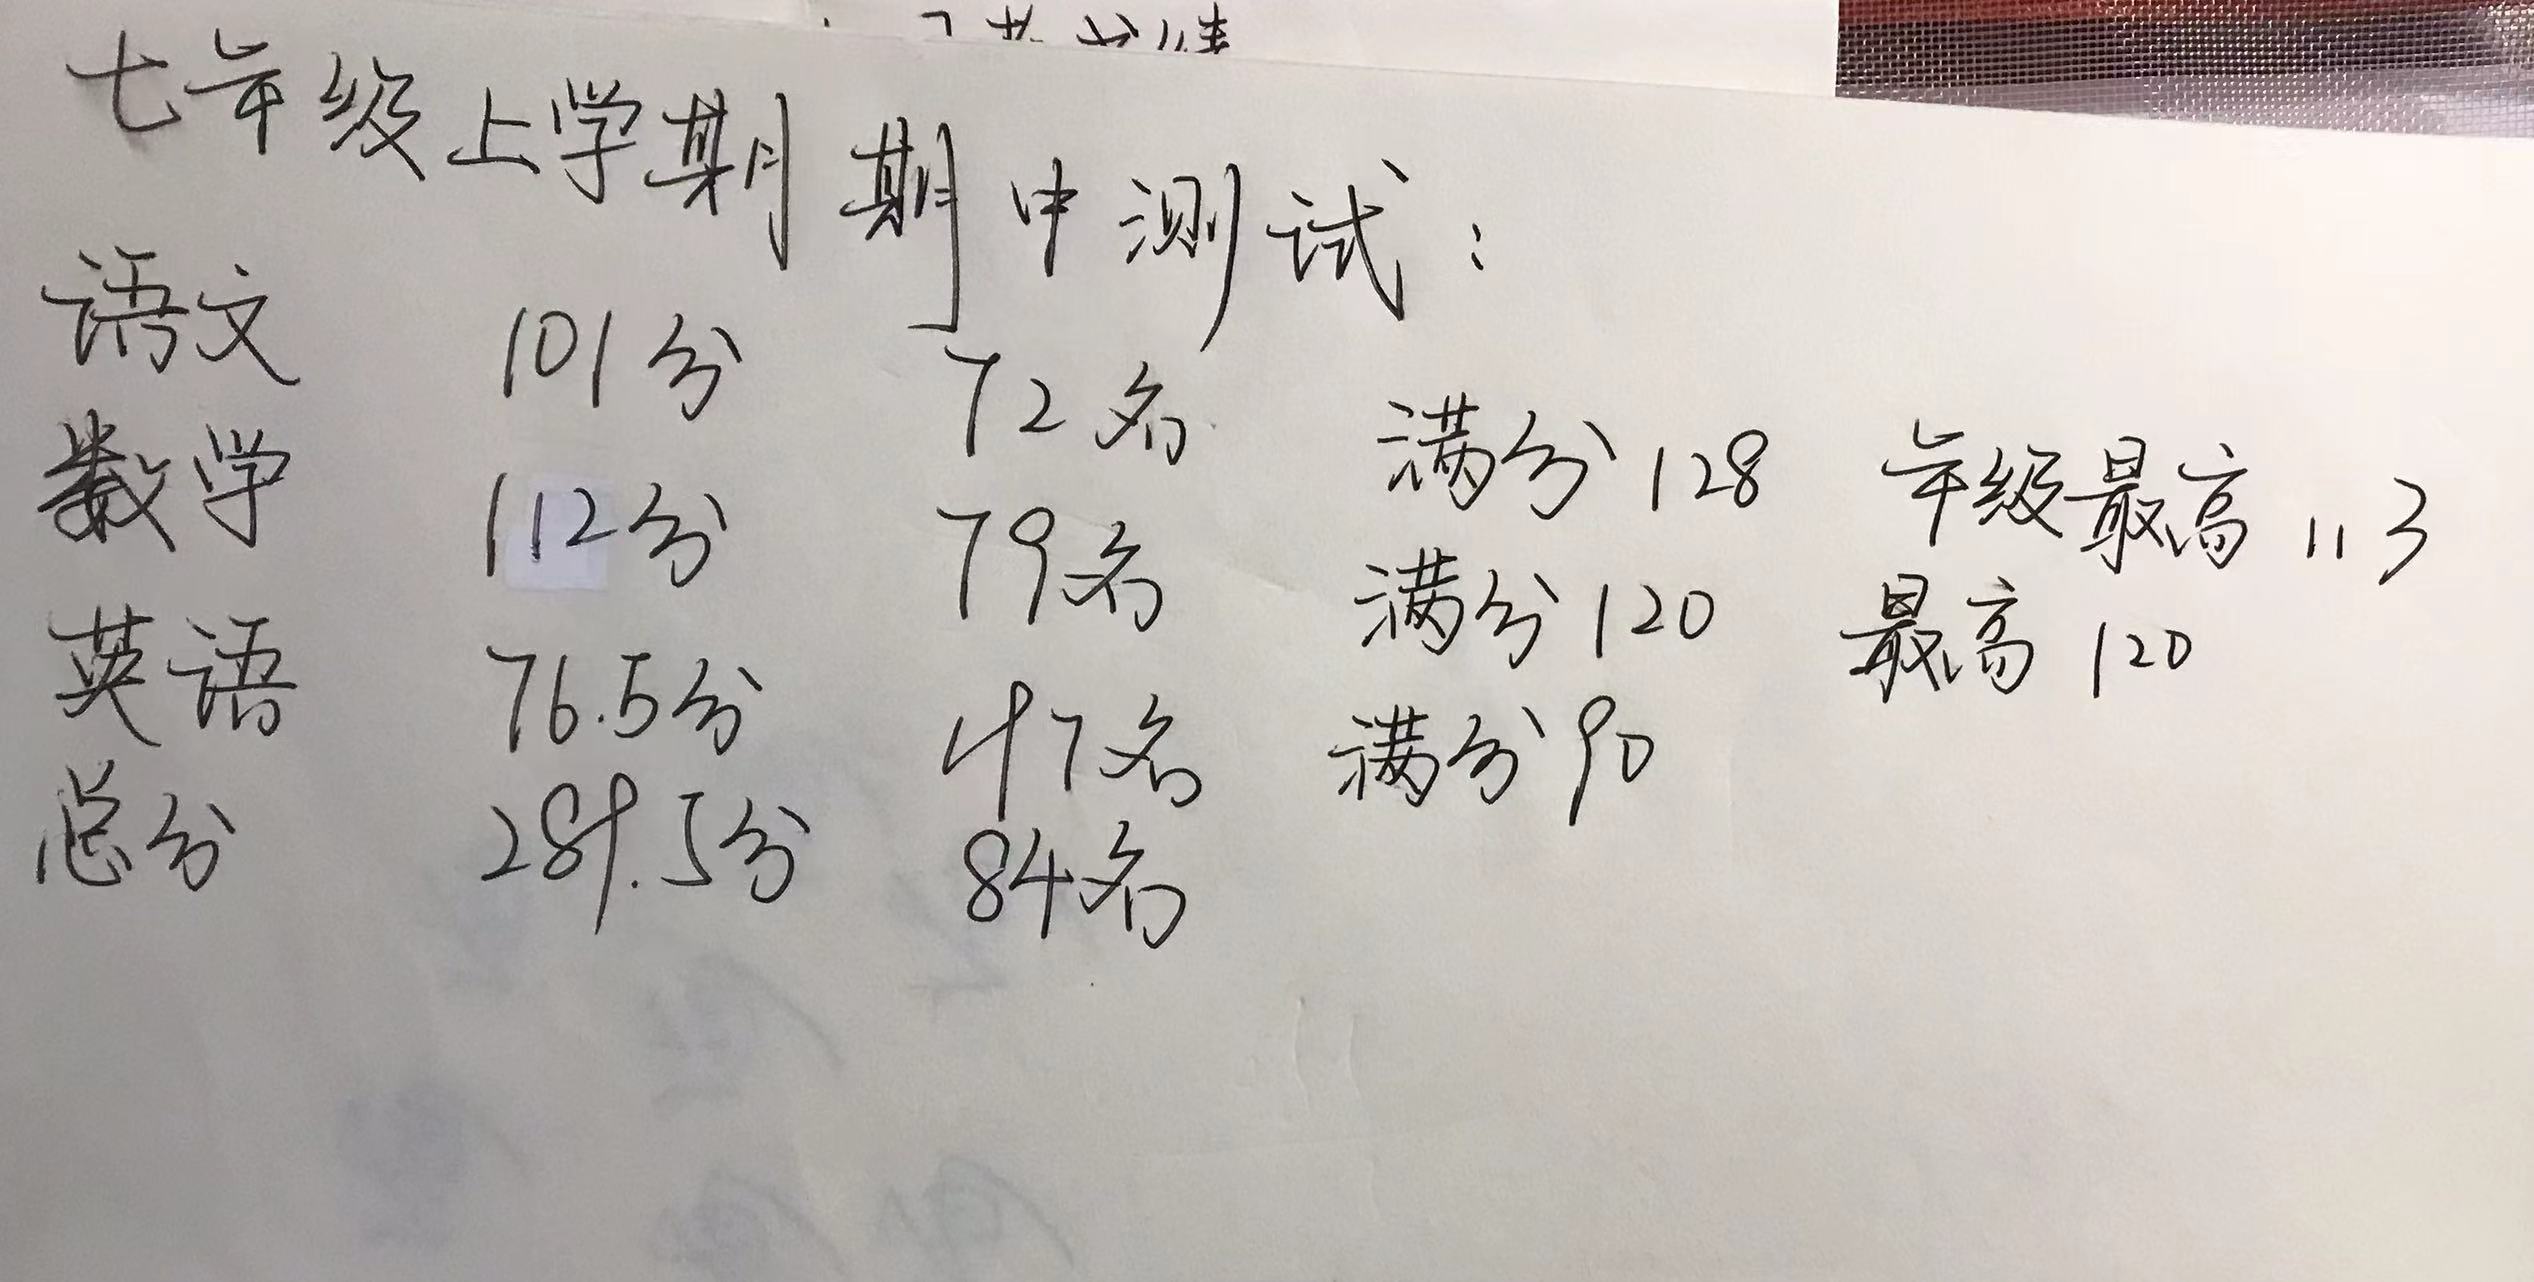 七年级上学期期中测试：
语文 101分 72名 满分128 年级最高113
数学 112分 79名 满分120 最高120
英语 76.5分 47名 满分90
总分 289.5分 84名